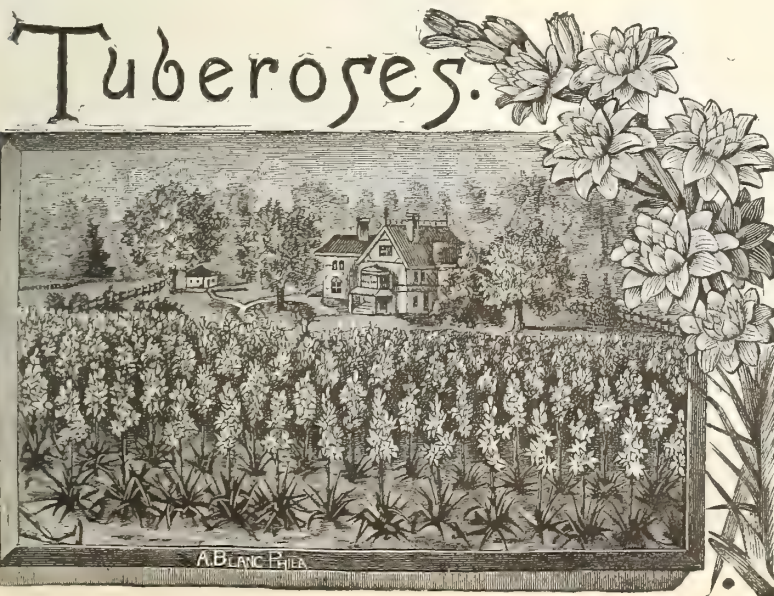 Tuberoses.
A. BLANC PHILA